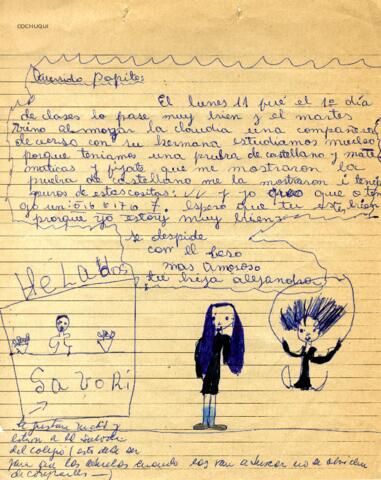 COCHUQUI
Querido Papito:
El lunes 11 fué el 1º día
de clases lo pase muy bien y el martes
vino almorzar la claudia una compañera
de curso con su hermana estudiamos mucho
porque teniamos una prueba de castellano y mate
maticas y fijate que me mostraron la
prueba de castellano me la mostraron i tenia
de estas cositas: que o ten
go un 6 o un 7. Espero que tu estes bien
porque yo estoy muy bien
se despide
con el beso
mas amoroso
tu hija alejandra
HELADOS
SAVORI
le gustan mucho y
estan a la salida
del colegio (este debe ser
para que los abuelos cuando los van a buscar no se olviden
de comprarles